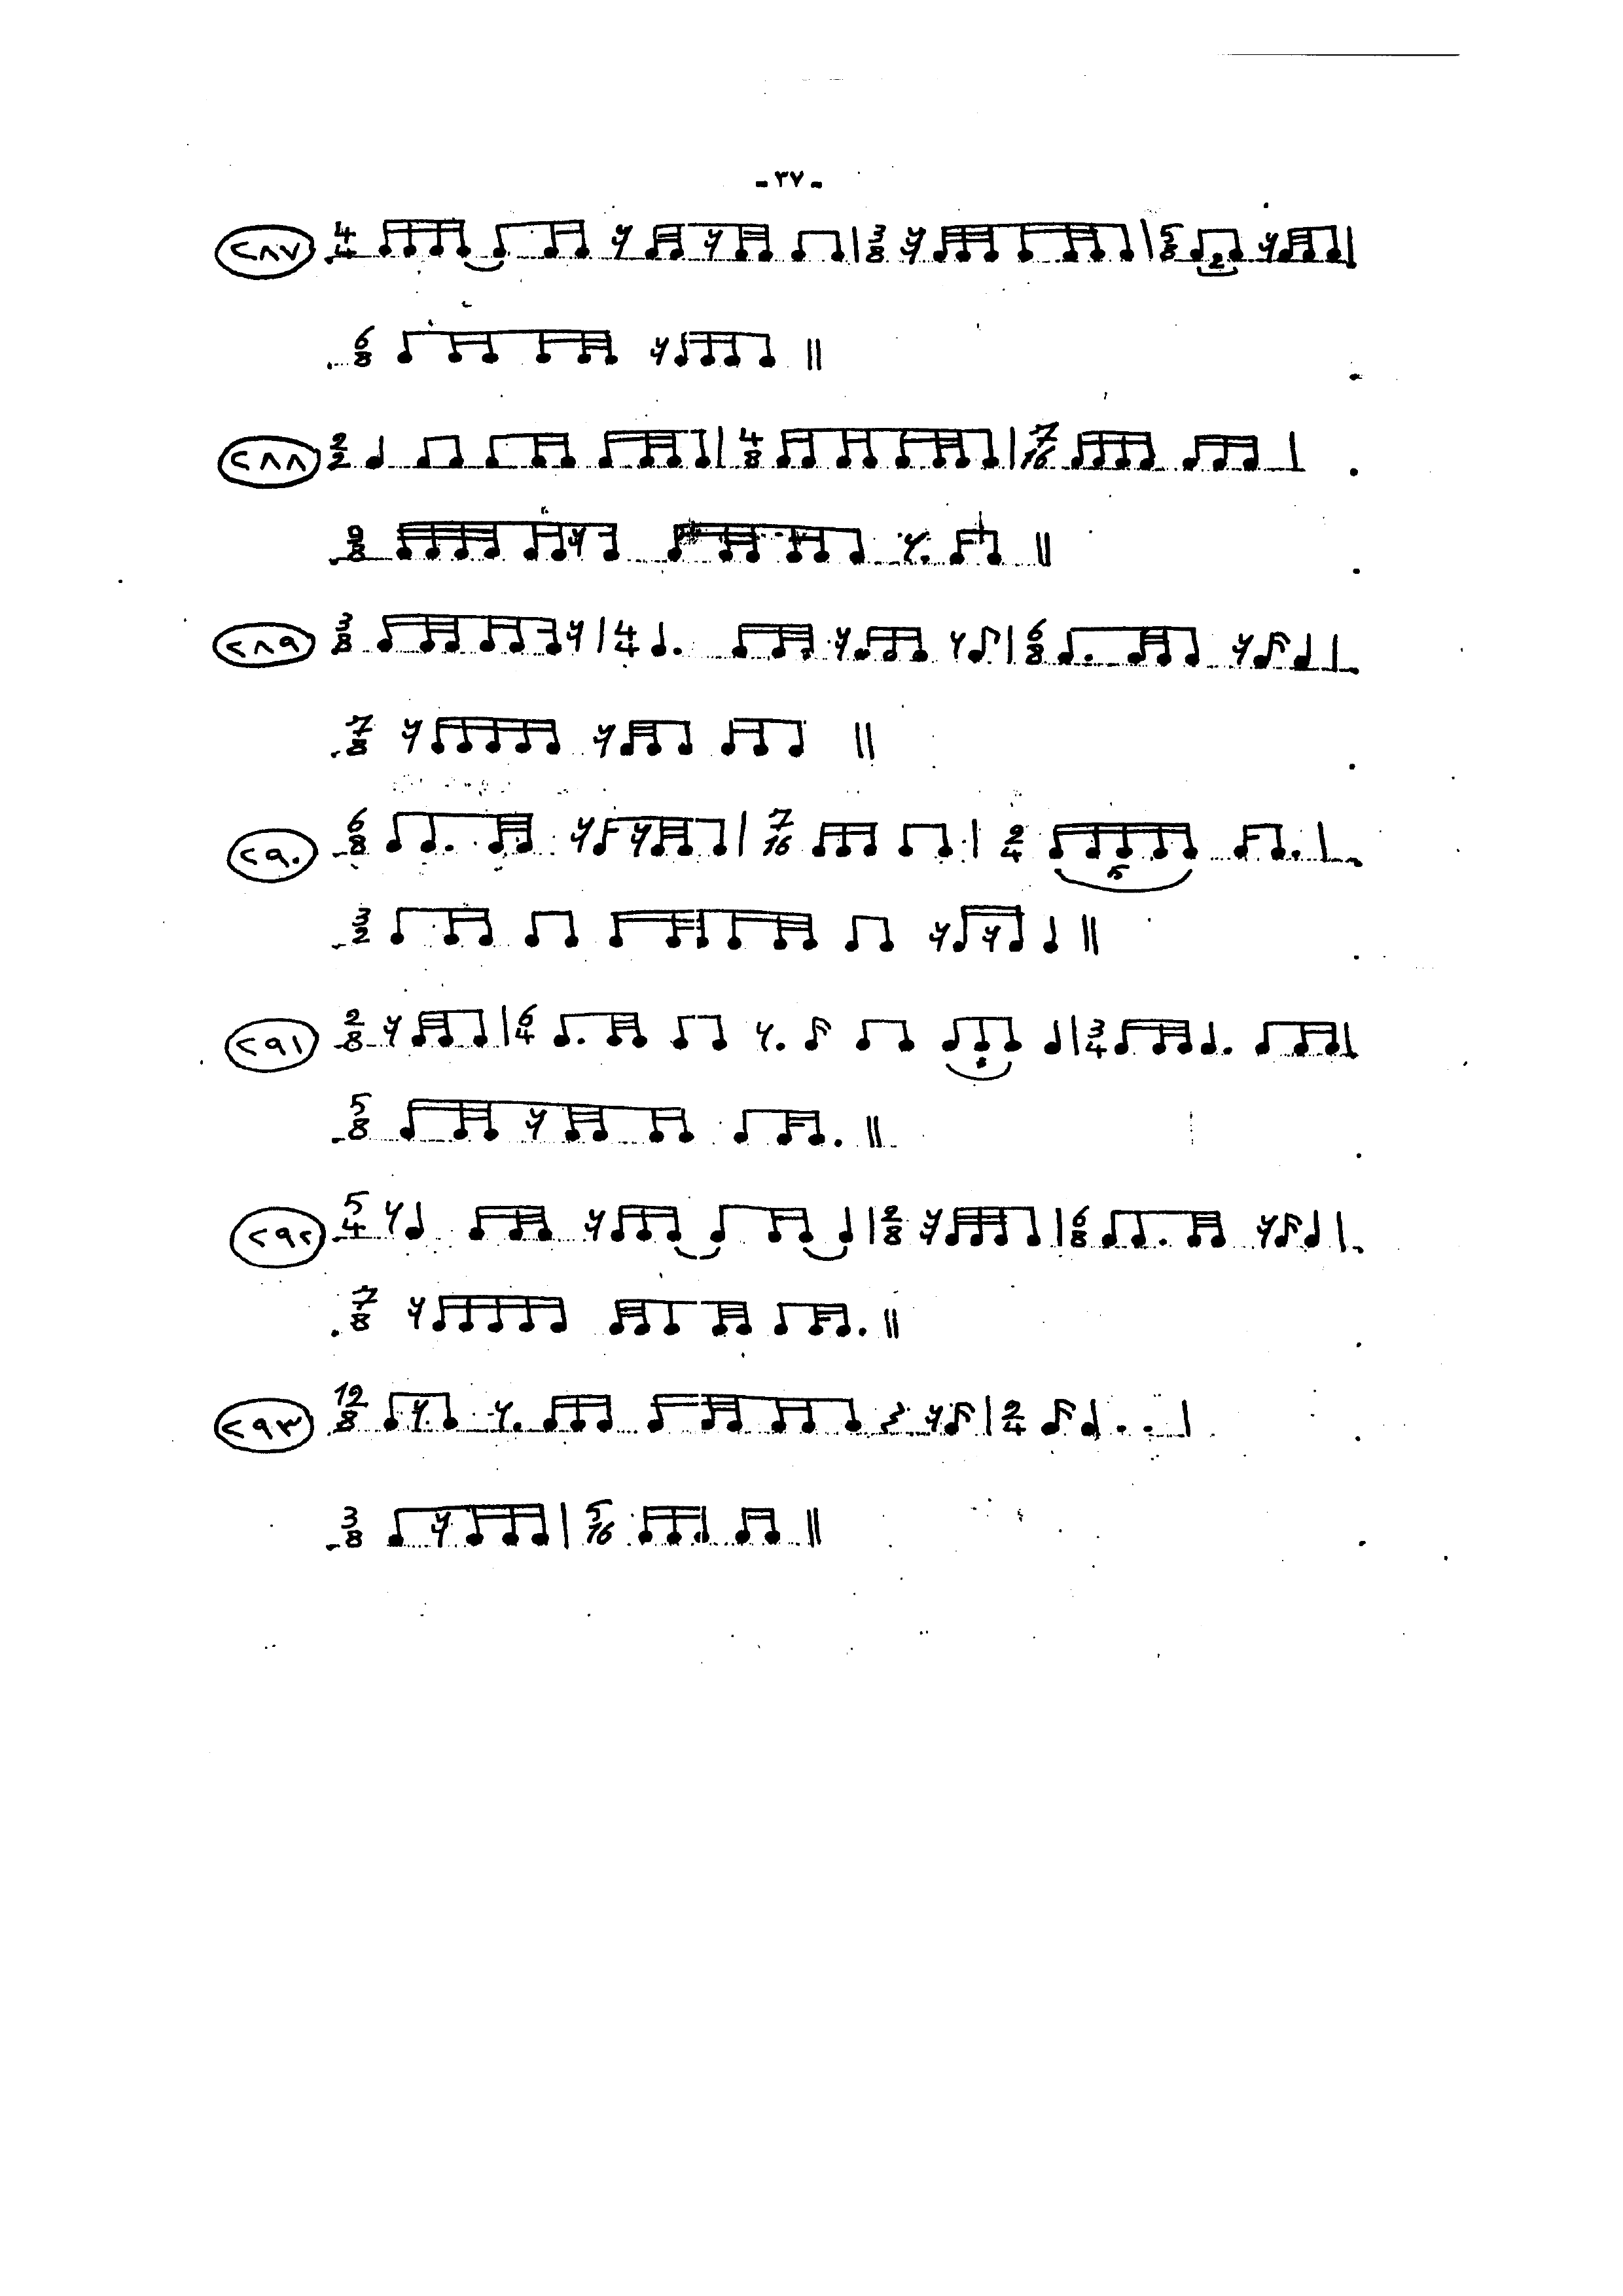 -٣٧-
٢٨٧ 4/4 3/8 5/8 2
6/8
٢٨٨ 2/2 4/8 7/16
9/8
٢٨٩ 3/8 4/4 6/8
7/8
٢٩٠ 6/8 7/16 2/4 5
3/2
٢٩١ 2/8 6/4 3/4
5/8
٢٩٢ 5/4 2/8 6/8
7/8
٢٩٣ 12/8 2/4
3/8 5/16